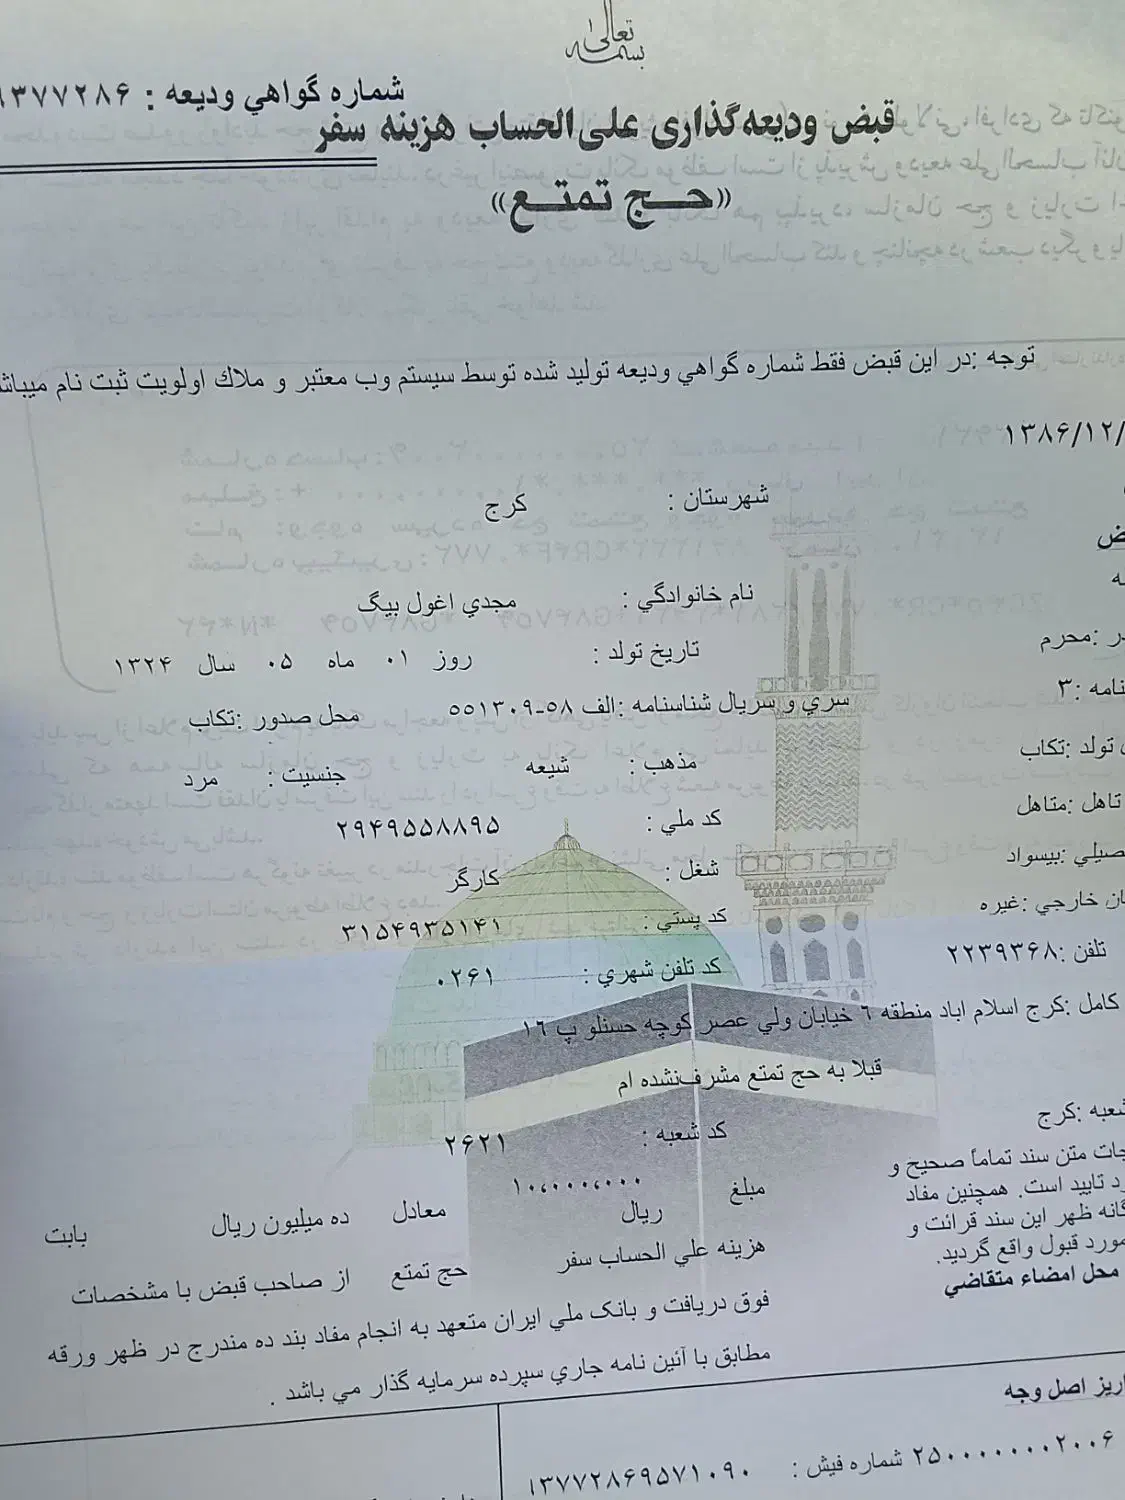 بسمه تعالی
شماره گواهي وديعه : ۱۳۷۷۲۸۶
قبض ودیعه‌گذاری علی‌الحساب هزینه سفر
«حج تمتع»
توجه :در اين قبض فقط شماره گواهي وديعه توليد شده توسط سيستم وب معتبر و ملاك اولويت ثبت نام ميباشد
۱۳۸۶/۱۲/
شهرستان : کرج
نام خانوادگي : مجدي اغول بيگ
:محرم
تاريخ تولد : روز ۰۱ ماه ۰۵ سال ۱۳۲۴
نامه :۳
سري و سريال شناسنامه :الف ۵۸-۵۵۱۳۰۹ محل صدور :تکاب
تولد :تکاب
مذهب : شيعه جنسيت : مرد
تاهل :متاهل
کد ملي : ۲۹۴۹۵۵۸۸۹۵
صيلي :بيسواد
شغل : کارگر
خارجي :غيره
کد پستي : ۳۱۵۴۹۳۵۱۴۱
تلفن :۲۲۳۹۳۶۸
کد تلفن شهري : ۰۲۶۱
کامل :کرج اسلام اباد منطقه ٦ خيابان ولي عصر کوچه حسنلو پ ١٦
قبلا به حج تمتع مشرف‌نشده ام
شعبه :کرج
کد شعبه : ۲۶۲۱
جات متن سند تماماً صحيح و
رد تاييد است. همچنين مفاد
گانه ظهر اين سند قرائت و
مورد قبول واقع گرديد.
محل امضاء متقاضي
مبلغ ۱۰،۰۰۰،۰۰۰ ريال معادل ده ميليون ريال بابت
هزينه علي الحساب سفر حج تمتع از صاحب قبض با مشخصات
فوق دريافت و بانک ملي ايران متعهد به انجام مفاد بند ده مندرج در ظهر ورقه
مطابق با آئين نامه جاري سپرده سرمايه گذار مي باشد .
اريز اصل وجه
۲۵۰۰۰۰۰۰۰۰۲۰۰۶ شماره فيش : ۱۳۷۷۲۸۶۹۵۷۱۰۹۰